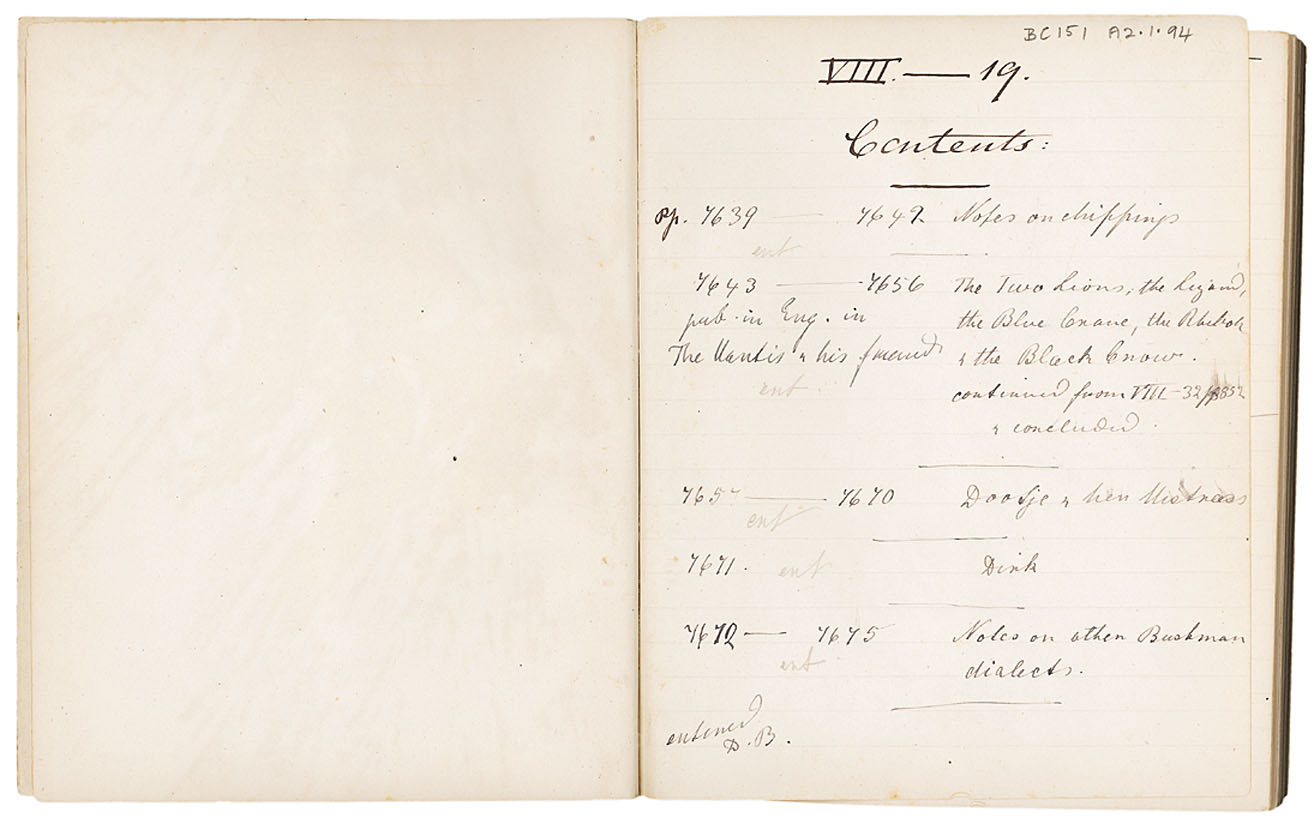 BC151 A2.1.94
VIII. — 19.
Contents:
pp. 7639 — 7642 Notes on chippings
ent
7643 — 7656 The Two Lions, the Lizard,
pub. in Eng. in the Blue Crane, the Rhebok
The Mantis & his friends & the Black Crow.
ent. continued from VIII-32
& concluded.
7657 — 7670 Doortje & her Mistress
ent
7671. ent Dirk
7672 — 7675 Notes on other Bushman
ent dialects.
entered
D.B.